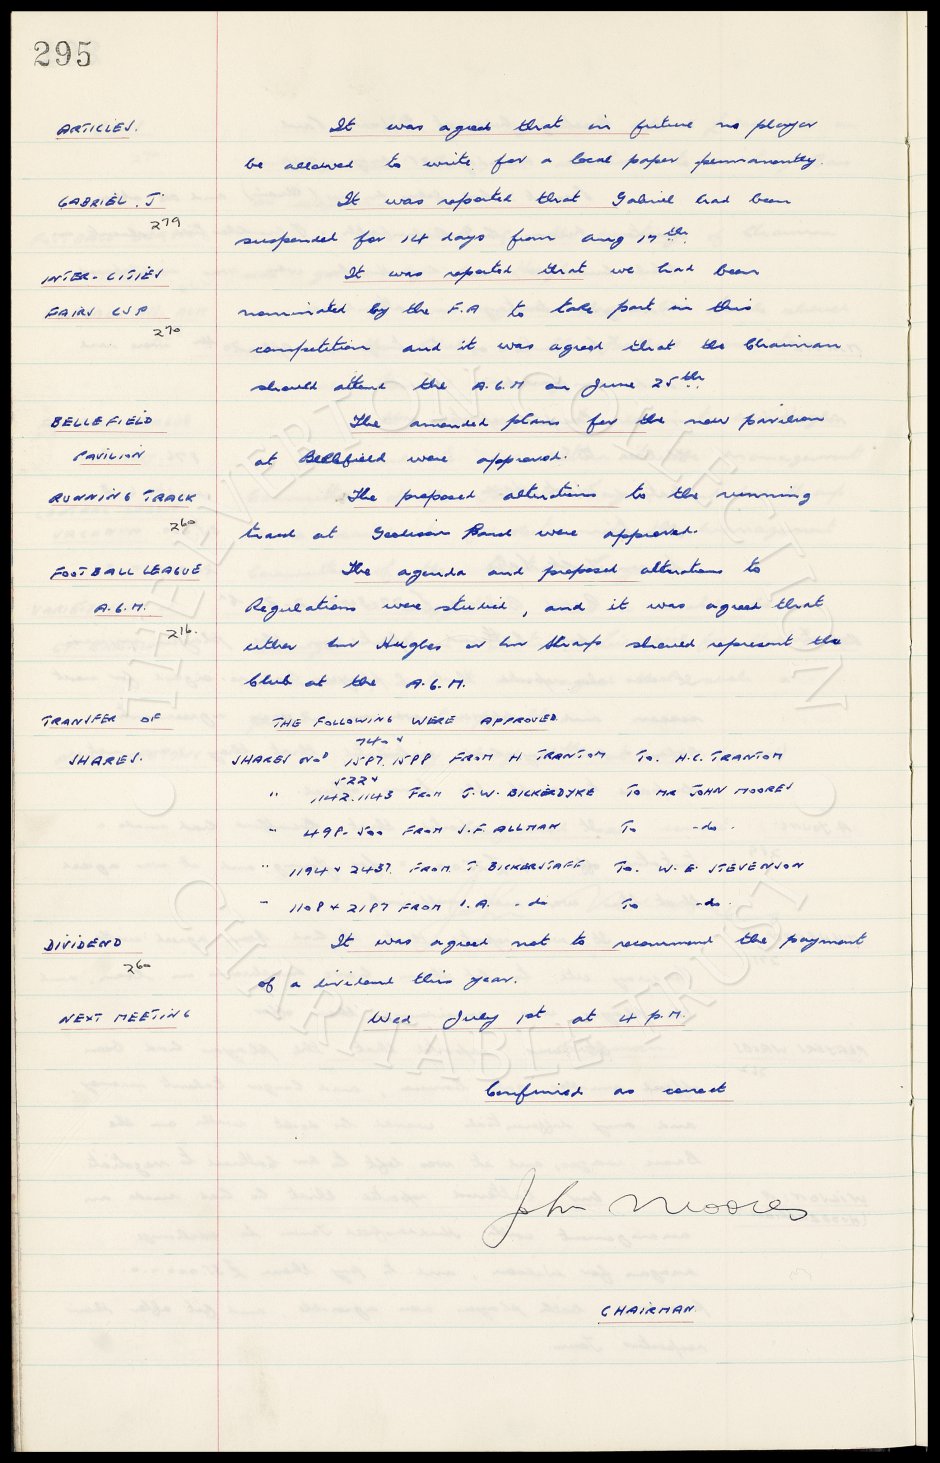 295
ARTICLES. It was agreed that in future no player
be allowed to write for a local paper permanently.
GABRIEL. J. It was reported that Gabriel had been
279
suspended for 14 days from Aug 17th.
INTER-CITIES It was reported that we had been
FAIRS CUP nominated by the F.A to take part in this
270
competition and it was agreed that the Chairman
should attend the A.G.M on June 25th.
BELLEFIELD The amended plans for the new pavilion
PAVILION at Bellefield were approved.
RUNNING TRACK The proposed alterations to the running
260
track at Goodison Road were approved.
FOOTBALL LEAGUE The agenda and proposed alterations to
A.G.M. Regulations were studied, and it was agreed that
276.
either Mr Hughes or Mr Sharp should represent the
Club at the A.G.M.
TRANSFER OF THE FOLLOWING WERE APPROVED
740 &
SHARES. SHARES NOS 1587. 1588 FROM H TRANTOM TO. H.C. TRANTOM
522 &
" 1142.1143 FROM J.W. BICKERDYKE TO MR JOHN MOORES
" 498-500 FROM J.F. ALLMAN TO -do-
" 1194 & 2437. FROM. T. BICKERSTAFF TO. W.E. STEVENSON
" 1108 & 2187 FROM I.A. -do TO -do-
DIVIDEND It was agreed not to recommend the payment
260
of a dividend this year.
NEXT MEETING Wed July 1st at 4 p.m.
Confirmed as correct
John Moores
CHAIRMAN
THE EVERTON COLLECTION
CHARITABLE TRUST